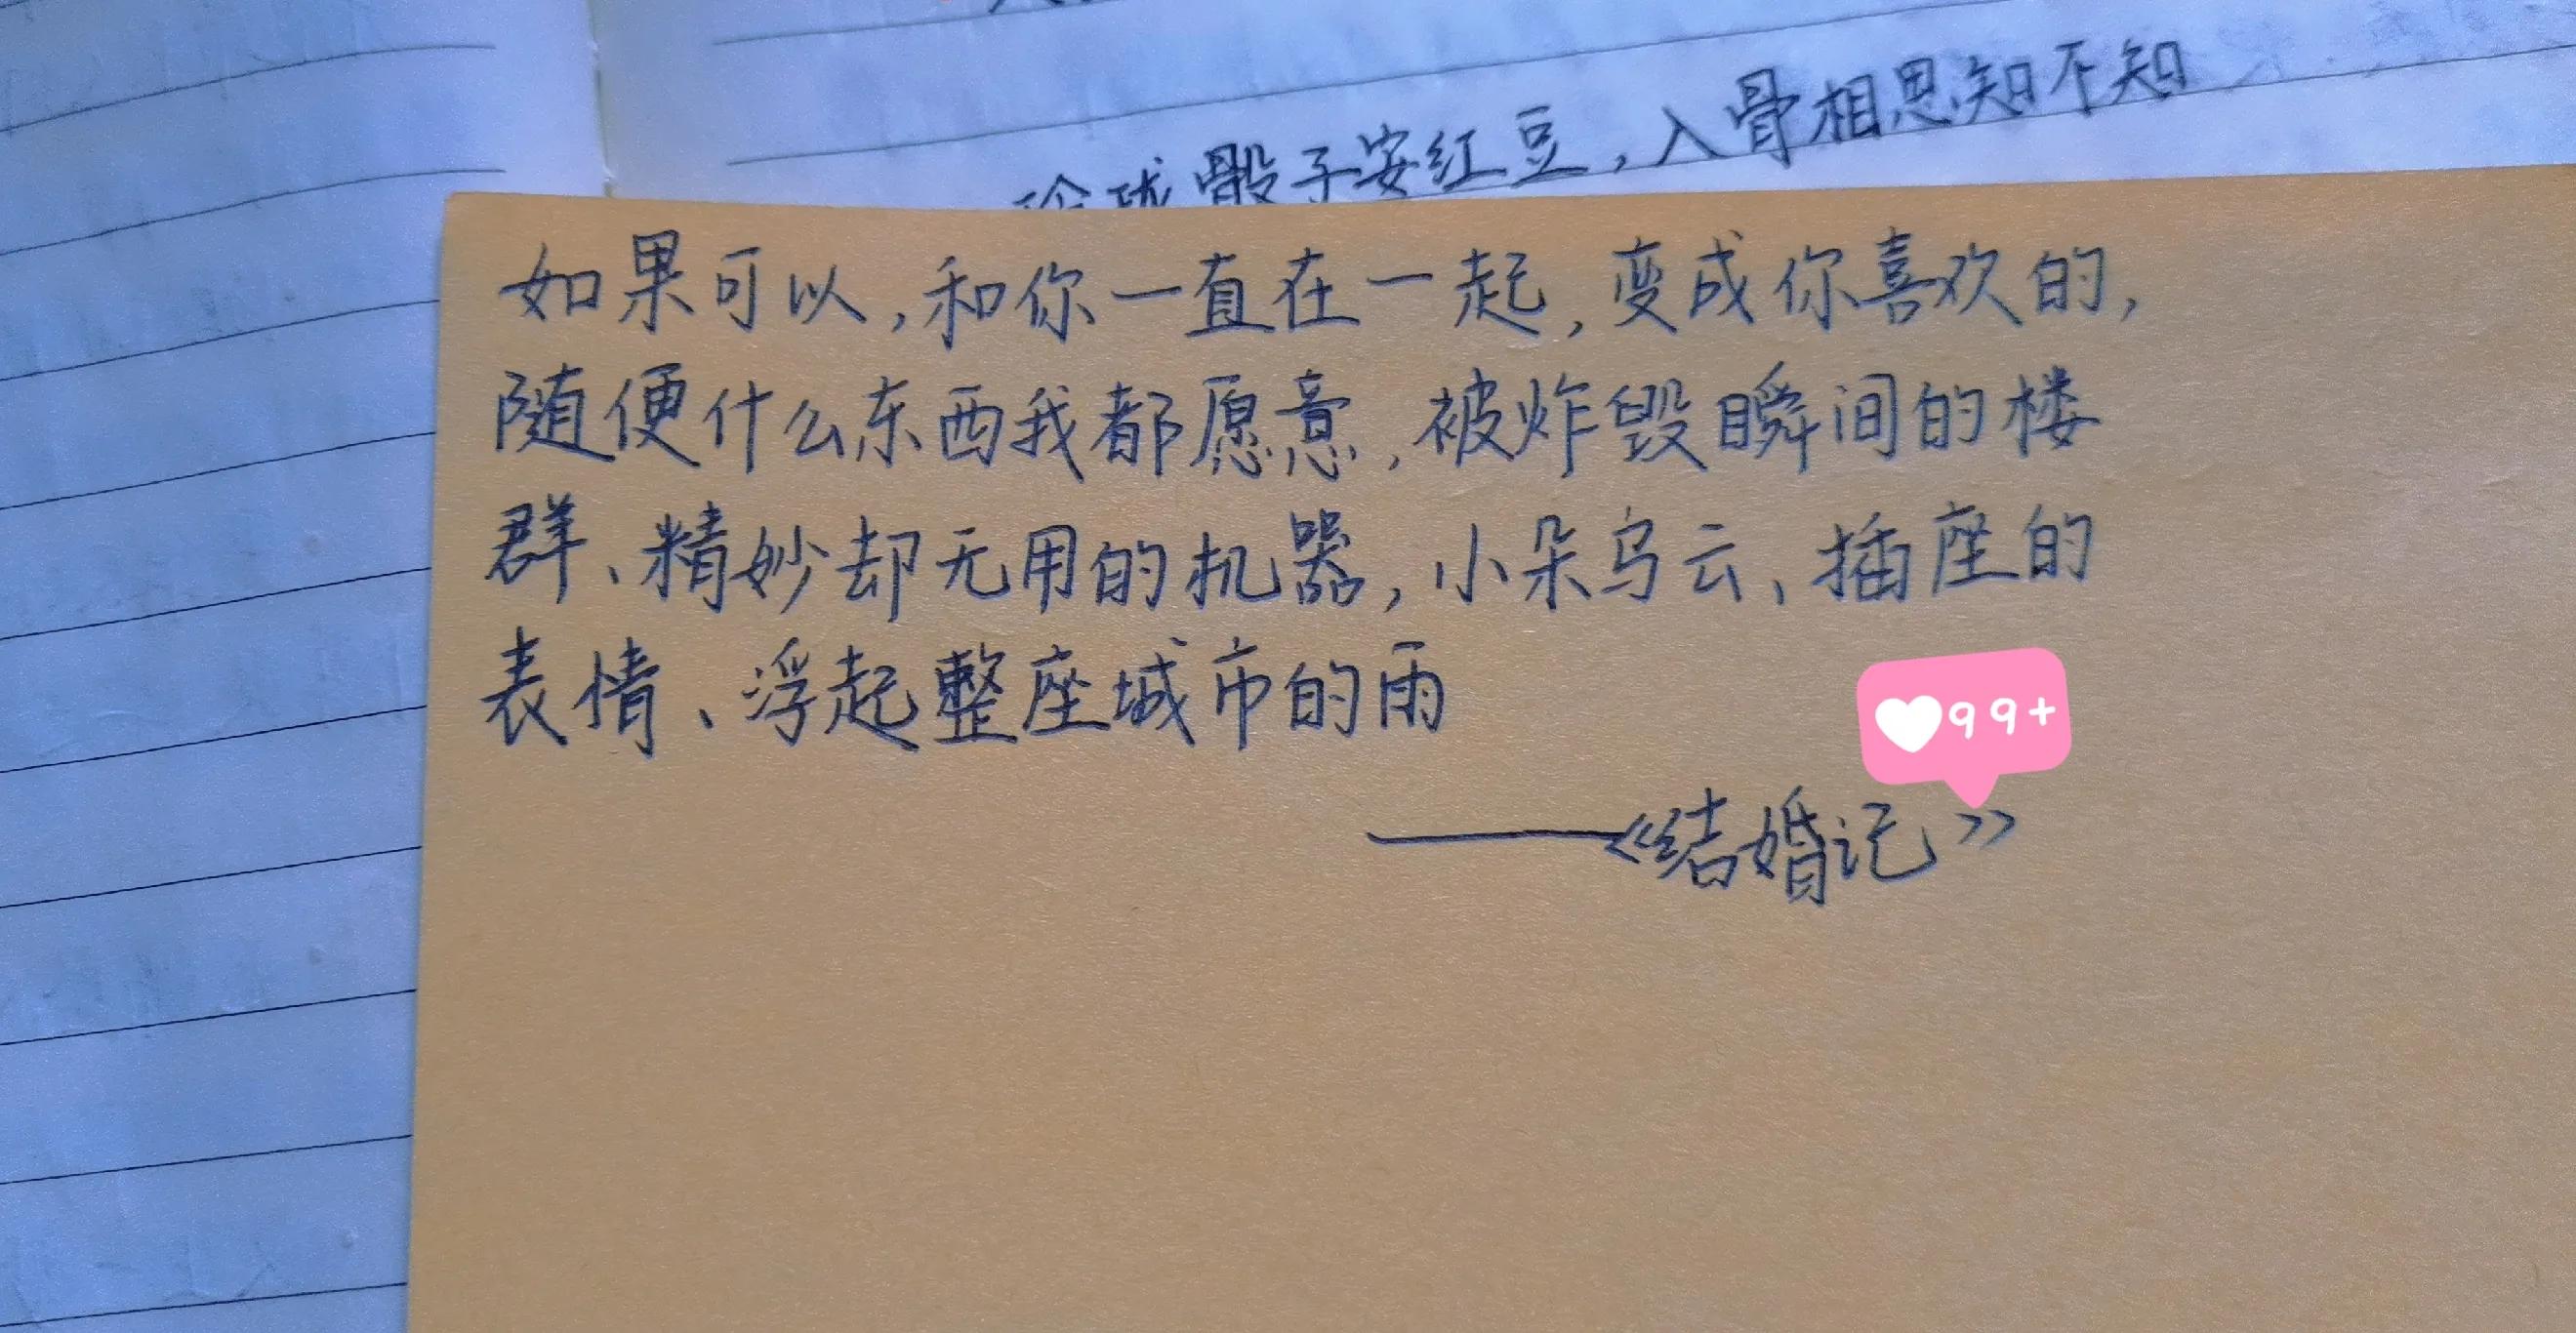 玲珑骰子安红豆,入骨相思知不知
如果可以,和你一直在一起,变成你喜欢的,
随便什么东西我都愿意,被炸毁瞬间的楼
群、精妙却无用的机器,小朵乌云、插座的
表情、浮起整座城市的雨
99+
——《结婚记》